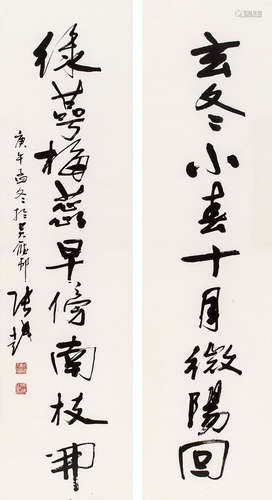 玄冬小春十月微陽回
綠萼梅蕊早傍南枝開
庚午孟冬於吳